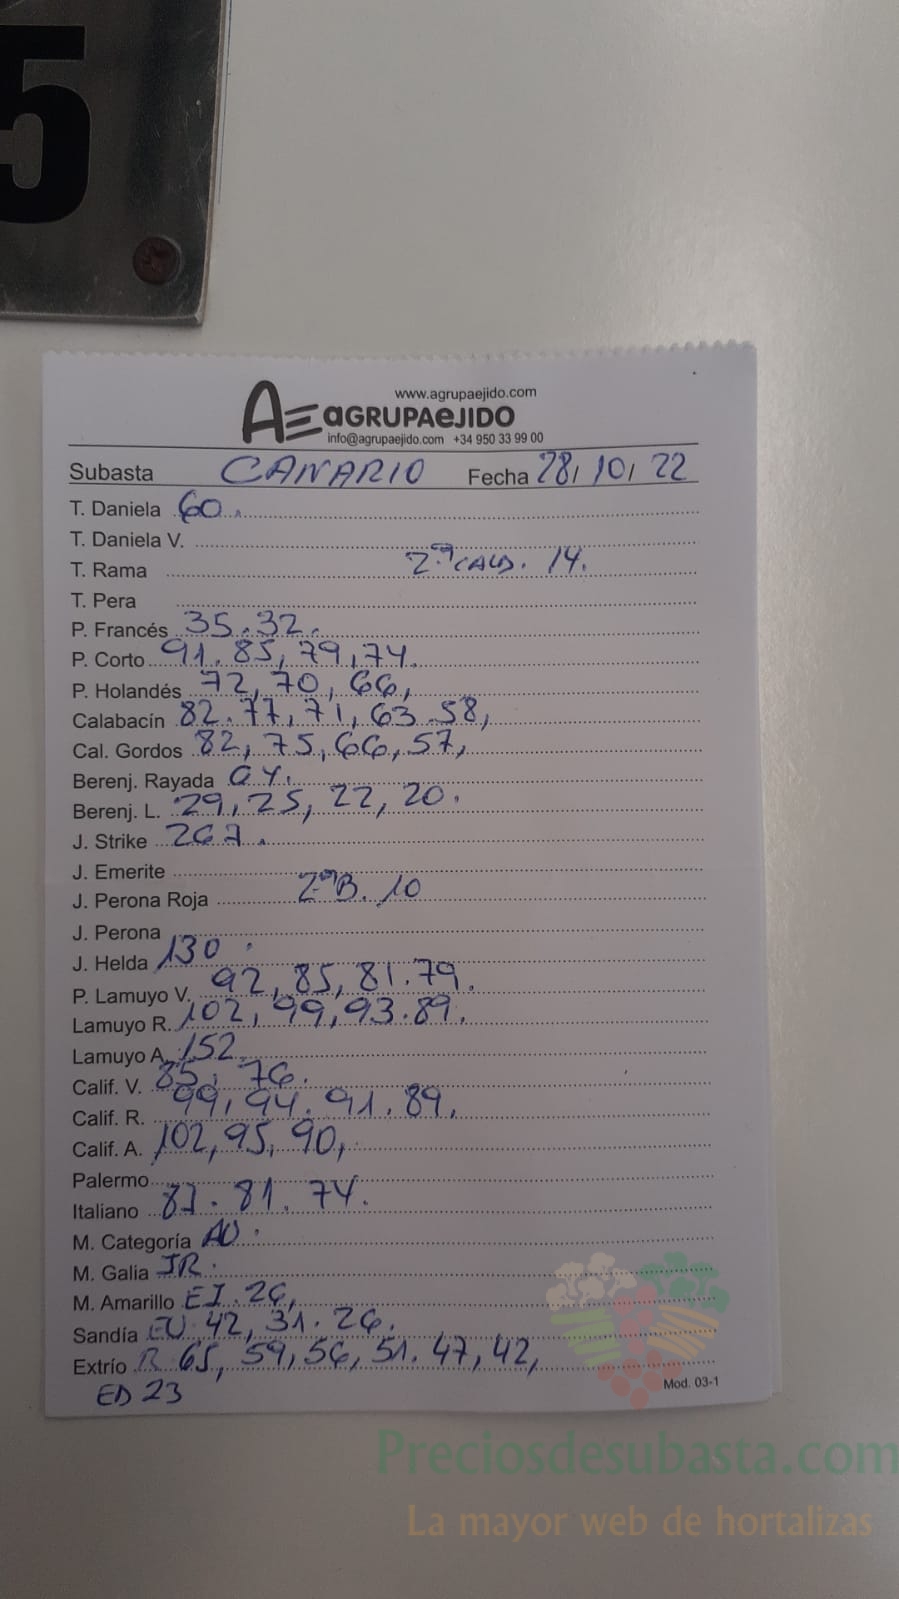 5
www.agrupaejido.com
AE aGRUPAeJIDO
info@agrupaejido.com +34 950 33 99 00
Subasta CANARIO Fecha 28/10/22
T. Daniela 60.
T. Daniela V.
2ª CALD. 14.
T. Rama
T. Pera
P. Francés 35.32.
P. Corto 91.85,79,74.
P. Holandés 72,70,66,
Calabacín 82.77,71,63.58,
Cal. Gordos 82,75,66,57,
Berenj. Rayada
Berenj. L. 29,25,22,20.
J. Strike 267.
J. Emerite
2ª B. 10
J. Perona Roja
J. Perona
J. Helda 130.
P. Lamuyo V. 92,85,81.79.
Lamuyo R. 102,99,93.89.
Lamuyo A. 152
Calif. V. 85, 76.
Calif. R. 99,94.91.89,
Calif. A. 102,95,90,
Palermo
Italiano 87.81.74.
M. Categoría AU.
M. Galia JR.
M. Amarillo EI.26,
Sandía EU 42,31.26.
Extrío R 65,59,56,51.47,42,
ED 23
Mod. 03-1
Preciosdesubasta.com
La mayor web de hortalizas